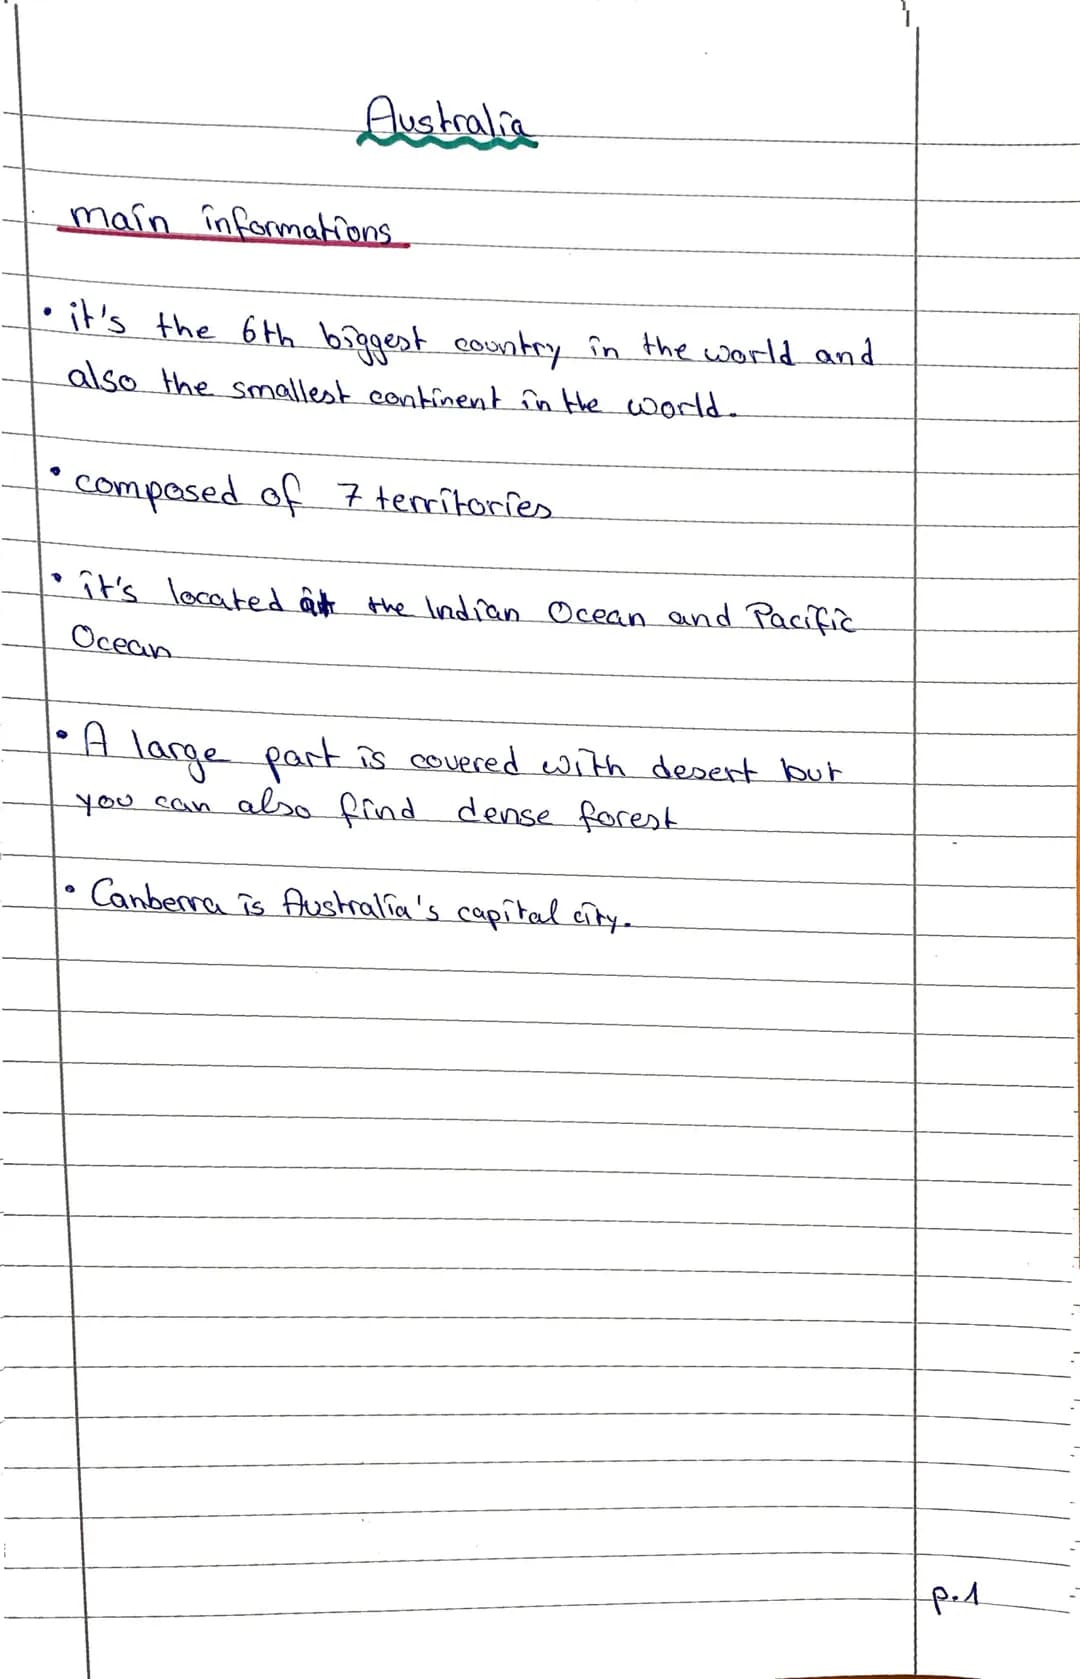 Australia
main informations
• it's the 6th biggest country in the world and
also the smallest continent in the world.
• composed of 7 territories
• it's located at the Indian Ocean and Pacific
Ocean
• A large part is covered with desert but
you can also find dense forest
• Canberra is Australia's capital city.
p.1